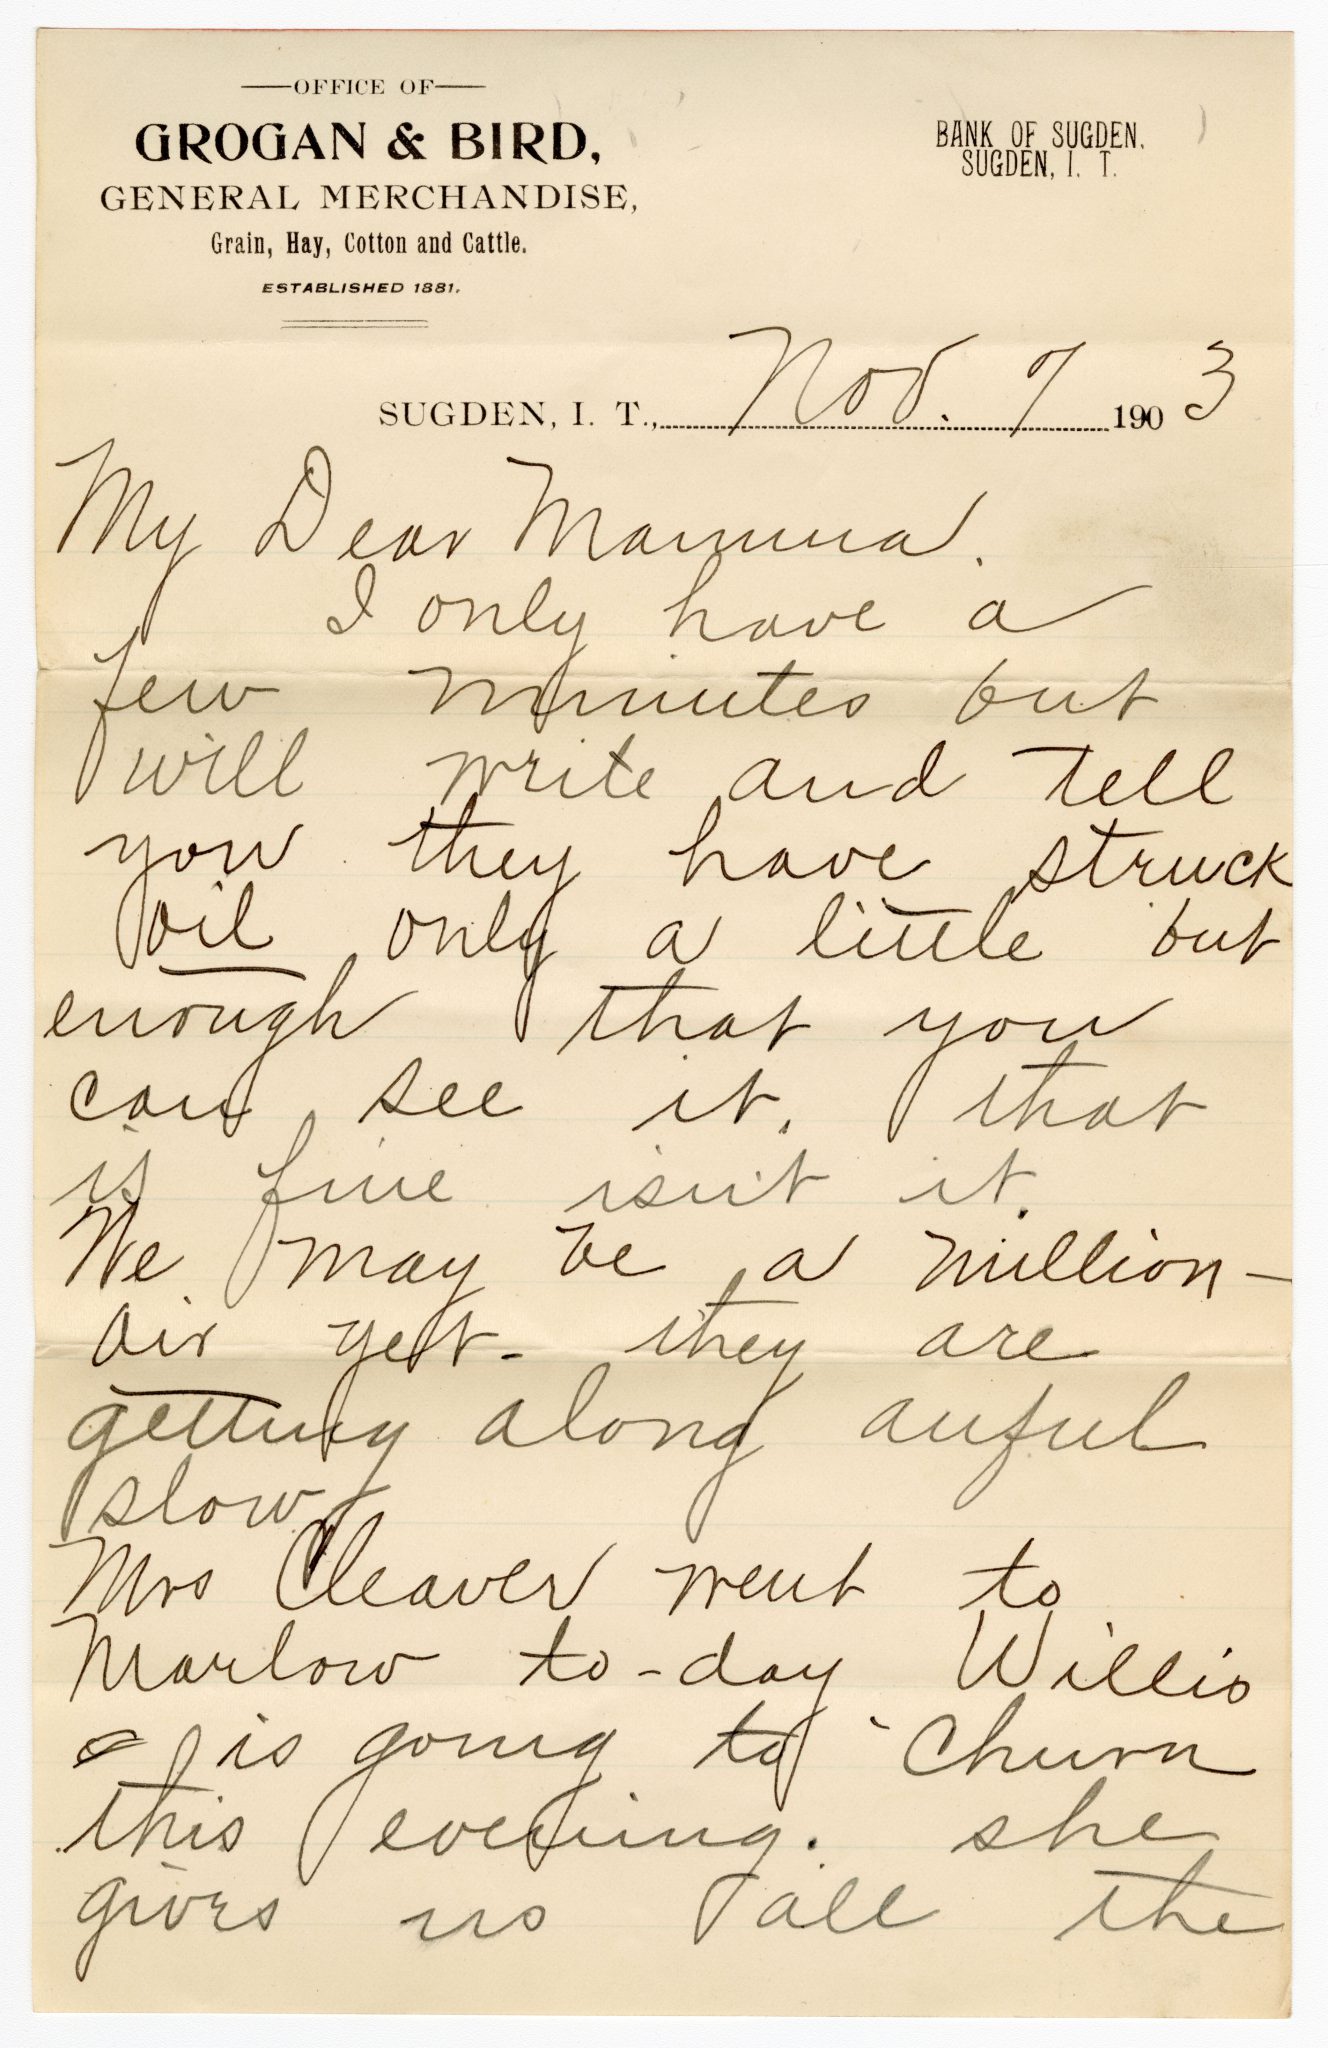 OFFICE OF
GROGAN & BIRD,
GENERAL MERCHANDISE,
Grain, Hay, Cotton and Cattle.
ESTABLISHED 1881.
BANK OF SUGDEN.
SUGDEN, I. T.
SUGDEN, I. T., Nov. 7 1903
My Dear Mamma.
I only have a
few minutes but
will write and tell
you they have struck
oil only a little but
enough that you
can see it. that
is fine isn't it.
We may be a million-
air yet - they are
getting along auful
slow
Mrs Cleaver went to
Marlow to-day Willis
is going to Churn
this evening. she
gives us all the